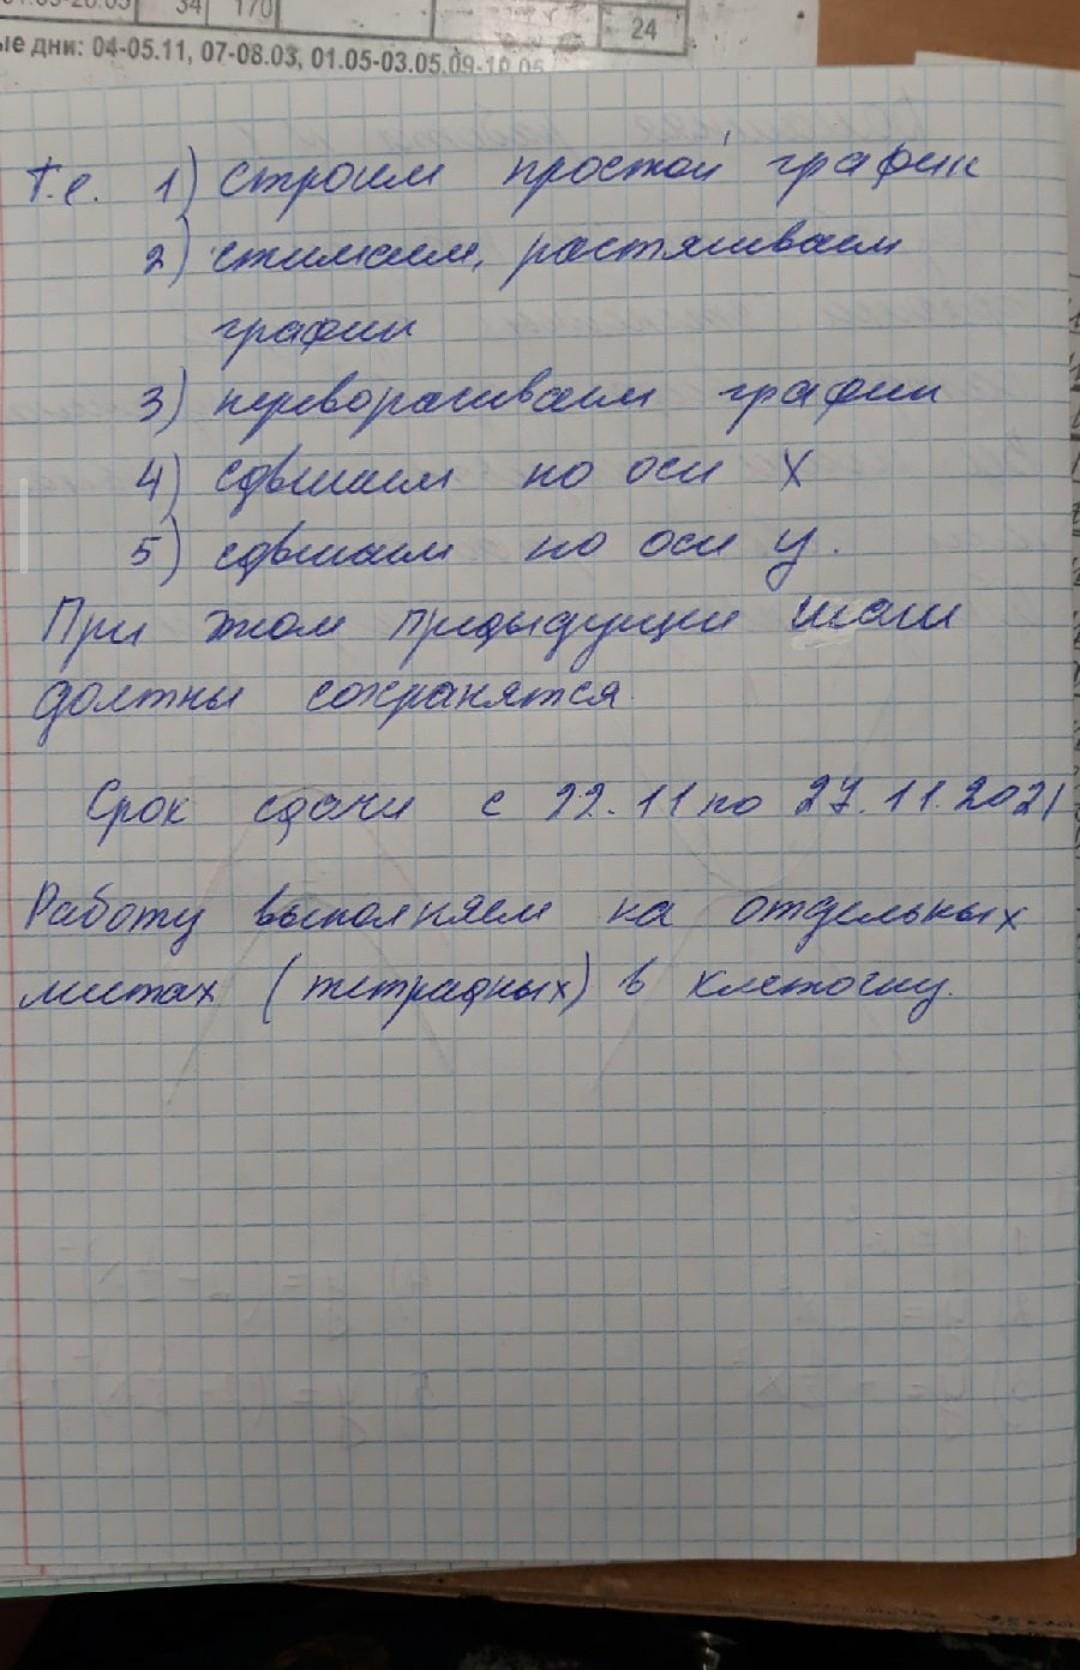 34 170
24
ые дни: 04-05.11, 07-08.03, 01.05-03.05, 09-10.05
т.е. 1) строим простой график
2) сжимаем, растягиваем
график
3) переворачиваем график
4) сдвигаем по оси X
5) сдвигаем по оси y.
При этом предыдущие шаги
должны сохранятся
Срок сдачи с 22.11 по 27.11.2021
Работу выполняем на отдельных
листах (тетрадных) в клеточку.